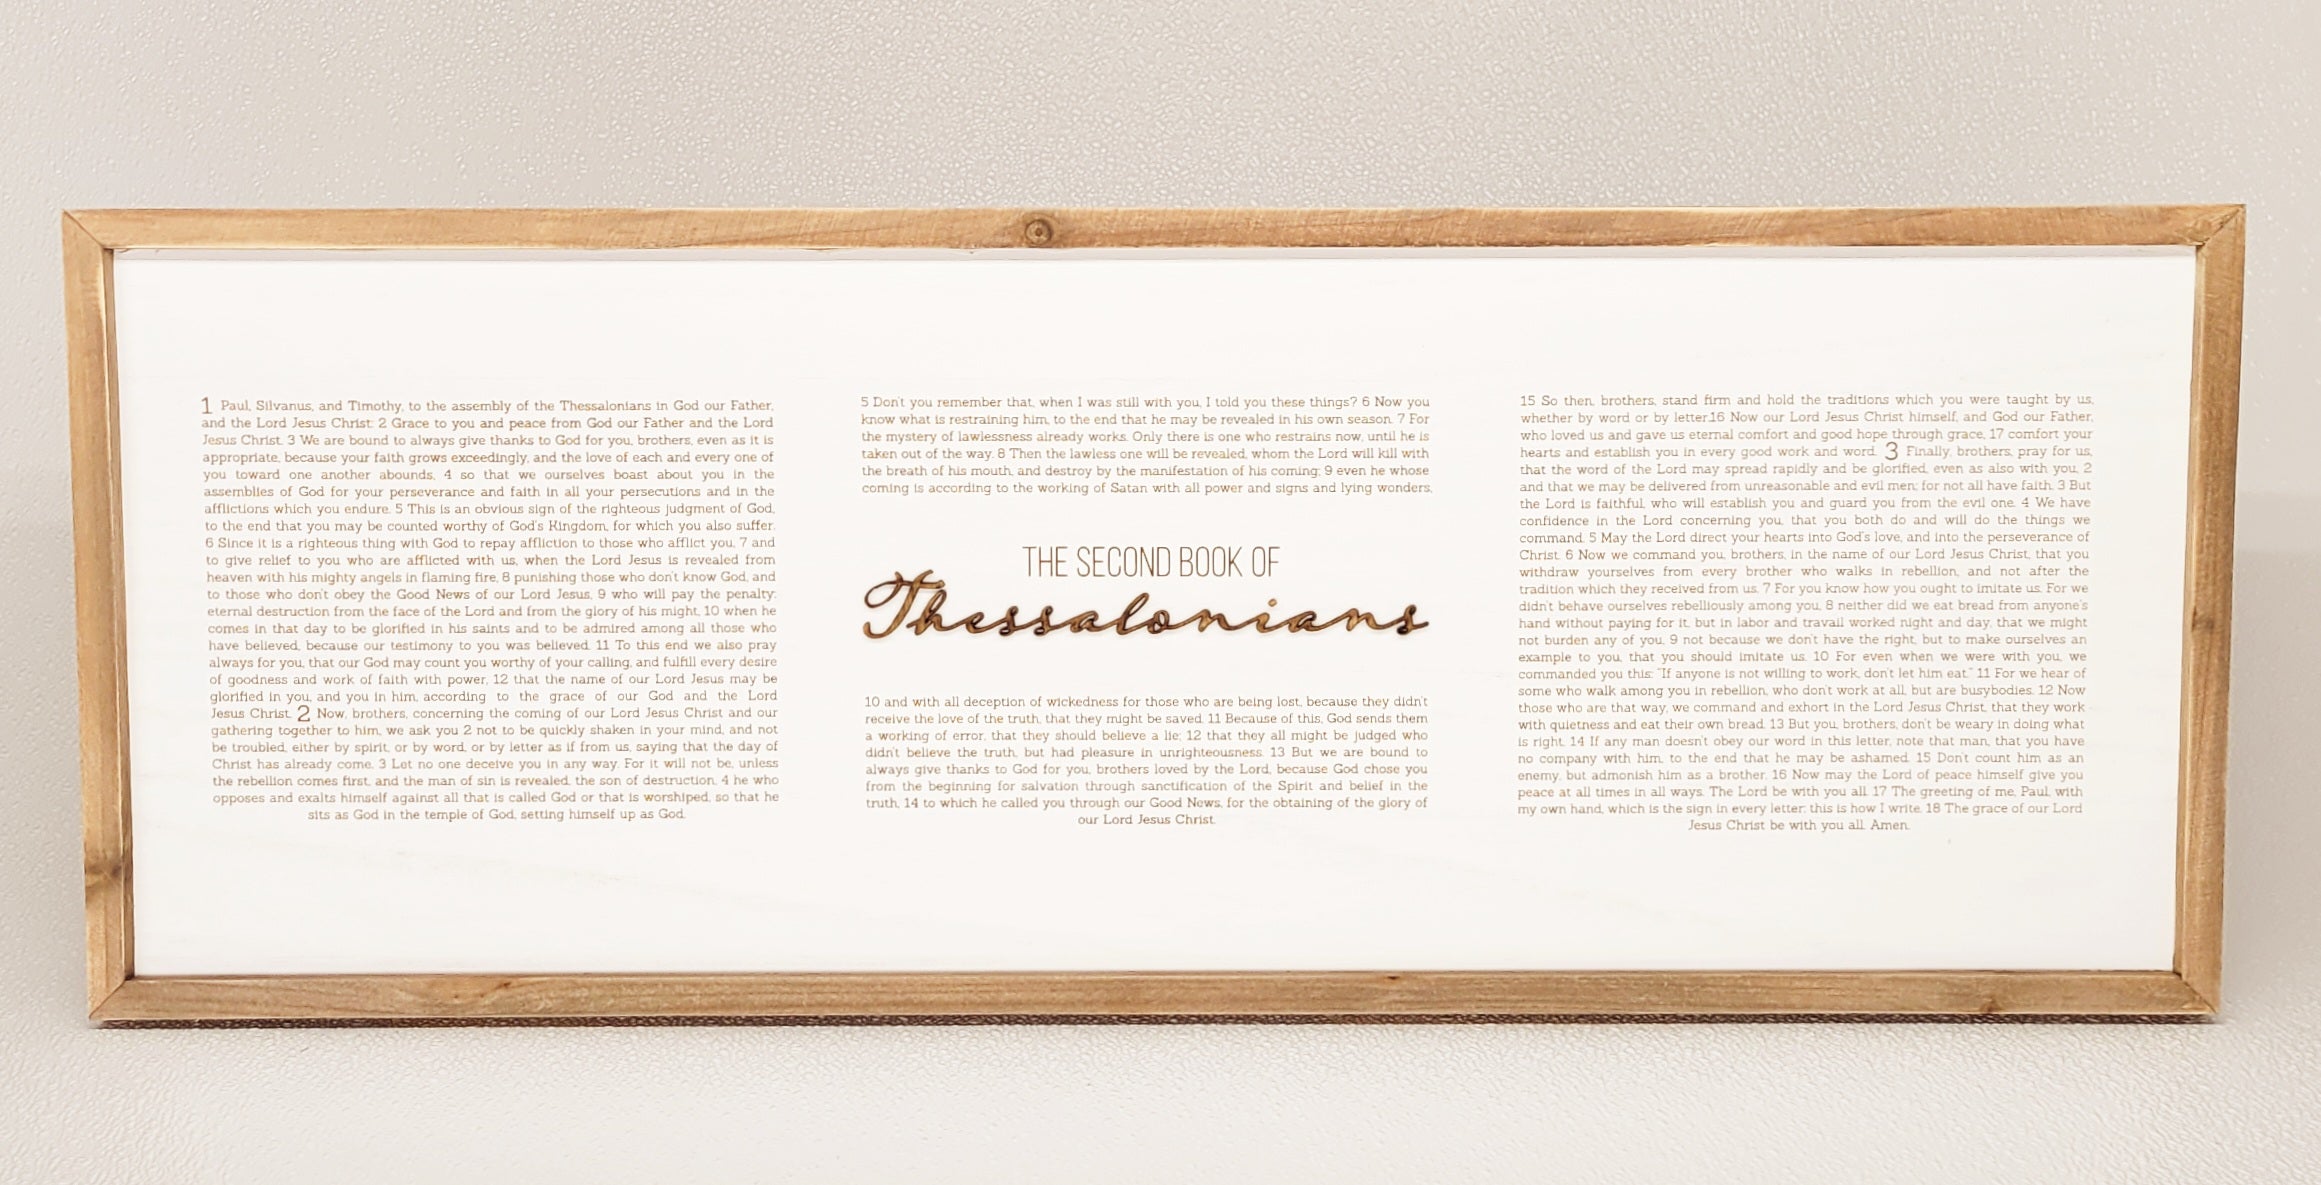 1 Paul, Silvanus, and Timothy, to the assembly of the Thessalonians in God our Father,
and the Lord Jesus Christ: 2 Grace to you and peace from God our Father and the Lord
Jesus Christ. 3 We are bound to always give thanks to God for you, brothers, even as it is
appropriate, because your faith grows exceedingly, and the love of each and every one of
you toward one another abounds, 4 so that we ourselves boast about you in the
assemblies of God for your perseverance and faith in all your persecutions and in the
afflictions which you endure. 5 This is an obvious sign of the righteous judgment of God,
to the end that you may be counted worthy of God's Kingdom, for which you also suffer.
6 Since it is a righteous thing with God to repay affliction to those who afflict you, 7 and
to give relief to you who are afflicted with us, when the Lord Jesus is revealed from
heaven with his mighty angels in flaming fire, 8 punishing those who don't know God, and
to those who don't obey the Good News of our Lord Jesus, 9 who will pay the penalty:
eternal destruction from the face of the Lord and from the glory of his might, 10 when he
comes in that day to be glorified in his saints and to be admired among all those who
have believed, because our testimony to you was believed. 11 To this end we also pray
always for you, that our God may count you worthy of your calling, and fulfill every desire
of goodness and work of faith with power, 12 that the name of our Lord Jesus may be
glorified in you, and you in him, according to the grace of our God and the Lord
Jesus Christ. 2 Now, brothers, concerning the coming of our Lord Jesus Christ and our
gathering together to him, we ask you 2 not to be quickly shaken in your mind, and not
be troubled, either by spirit, or by word, or by letter as if from us, saying that the day of
Christ has already come. 3 Let no one deceive you in any way. For it will not be, unless
the rebellion comes first, and the man of sin is revealed, the son of destruction, 4 he who
opposes and exalts himself against all that is called God or that is worshiped, so that he
sits as God in the temple of God, setting himself up as God.
5 Don't you remember that, when I was still with you, I told you these things? 6 Now you
know what is restraining him, to the end that he may be revealed in his own season. 7 For
the mystery of lawlessness already works. Only there is one who restrains now, until he is
taken out of the way. 8 Then the lawless one will be revealed, whom the Lord will kill with
the breath of his mouth, and destroy by the manifestation of his coming; 9 even he whose
coming is according to the working of Satan with all power and signs and lying wonders,
THE SECOND BOOK OF
Thessalonians
10 and with all deception of wickedness for those who are being lost, because they didn't
receive the love of the truth, that they might be saved. 11 Because of this, God sends them
a working of error, that they should believe a lie; 12 that they all might be judged who
didn't believe the truth, but had pleasure in unrighteousness. 13 But we are bound to
always give thanks to God for you, brothers loved by the Lord, because God chose you
from the beginning for salvation through sanctification of the Spirit and belief in the
truth, 14 to which he called you through our Good News, for the obtaining of the glory of
our Lord Jesus Christ.
15 So then, brothers, stand firm and hold the traditions which you were taught by us,
whether by word or by letter.16 Now our Lord Jesus Christ himself, and God our Father,
who loved us and gave us eternal comfort and good hope through grace, 17 comfort your
hearts and establish you in every good work and word. 3 Finally, brothers, pray for us,
that the word of the Lord may spread rapidly and be glorified, even as also with you, 2
and that we may be delivered from unreasonable and evil men; for not all have faith. 3 But
the Lord is faithful, who will establish you and guard you from the evil one. 4 We have
confidence in the Lord concerning you, that you both do and will do the things we
command. 5 May the Lord direct your hearts into God's love, and into the perseverance of
Christ. 6 Now we command you, brothers, in the name of our Lord Jesus Christ, that you
withdraw yourselves from every brother who walks in rebellion, and not after the
tradition which they received from us. 7 For you know how you ought to imitate us. For we
didn't behave ourselves rebelliously among you, 8 neither did we eat bread from anyone's
hand without paying for it, but in labor and travail worked night and day, that we might
not burden any of you, 9 not because we don't have the right, but to make ourselves an
example to you, that you should imitate us. 10 For even when we were with you, we
commanded you this: "If anyone is not willing to work, don't let him eat." 11 For we hear of
some who walk among you in rebellion, who don't work at all, but are busybodies. 12 Now
those who are that way, we command and exhort in the Lord Jesus Christ, that they work
with quietness and eat their own bread. 13 But you, brothers, don't be weary in doing what
is right. 14 If any man doesn't obey our word in this letter, note that man, that you have
no company with him, to the end that he may be ashamed. 15 Don't count him as an
enemy, but admonish him as a brother. 16 Now may the Lord of peace himself give you
peace at all times in all ways. The Lord be with you all. 17 The greeting of me, Paul, with
my own hand, which is the sign in every letter: this is how I write. 18 The grace of our Lord
Jesus Christ be with you all. Amen.